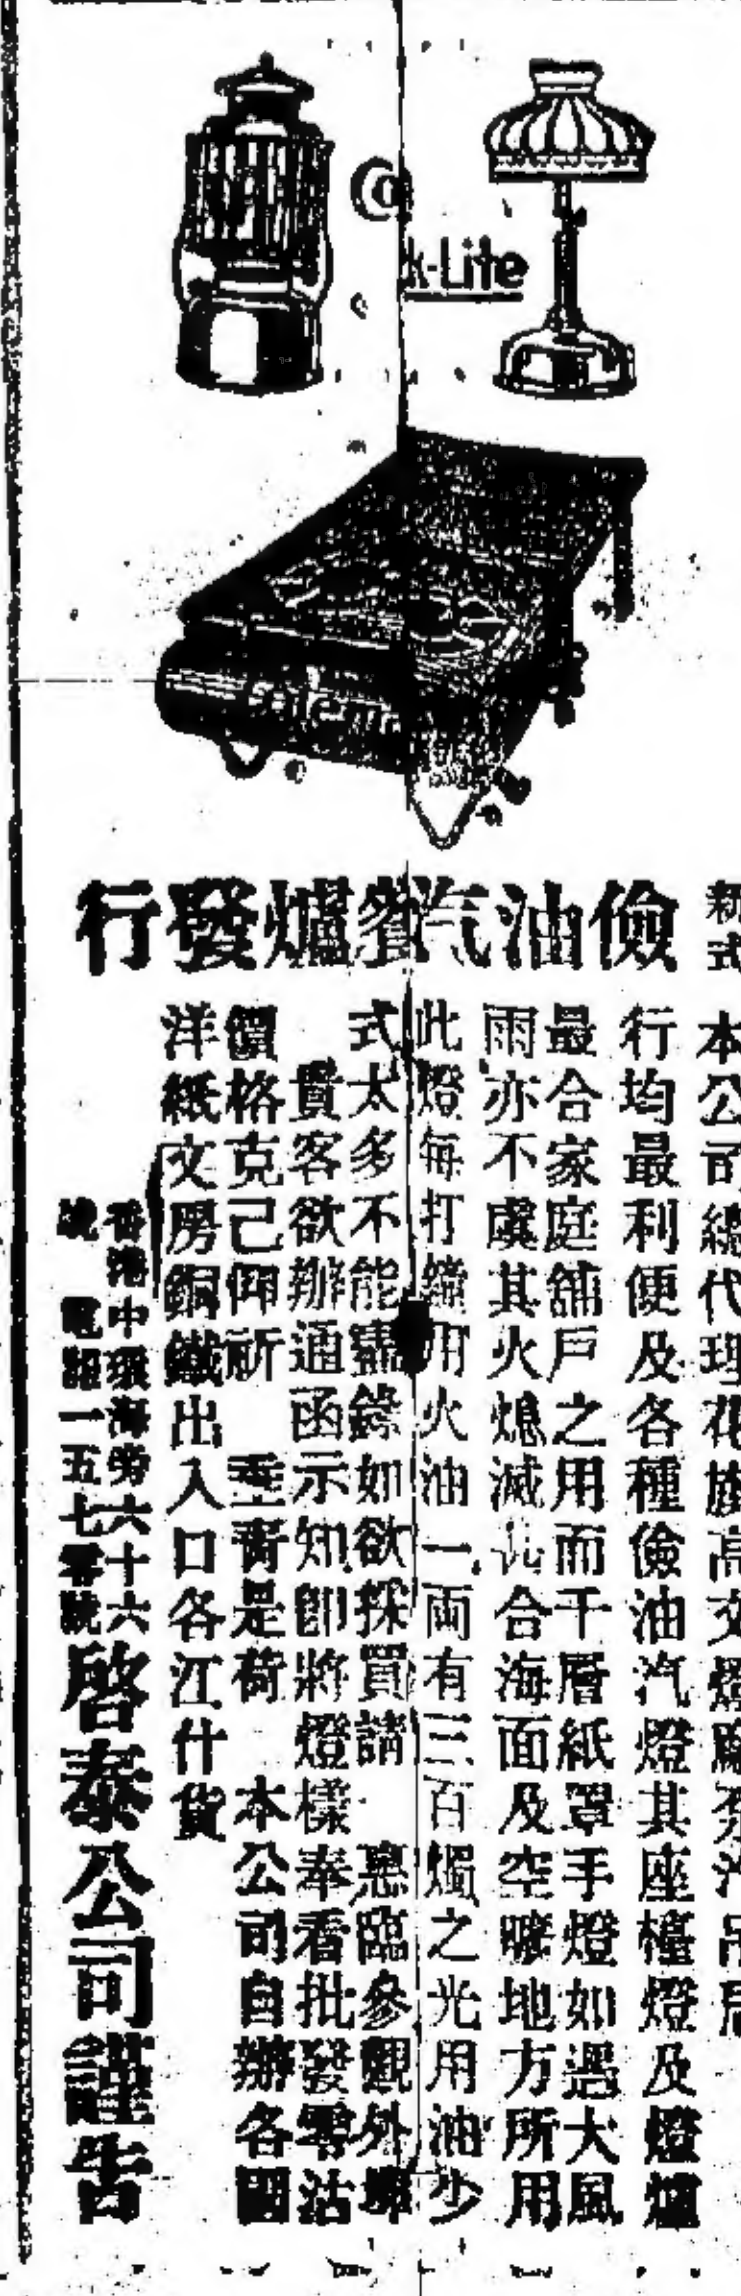 k-Lite
新式
儉油汽餐爐發行
本公司總代理花旗高
行均最利便及各種儉油汽燈其座檯燈及燈爐
最合家庭舖戶之用而千層紙罩手燈如遇大風
雨亦不虞其火熄滅 合海面及空曠地方所用
此燈每打鐘用火油一兩有三百燭之光用油少
式太多不能盡錄如欲採買請 惠臨參觀外埠
貴客欲辦通函示知即將燈樣奉看批發零沽
價格克己仰祈 垂青是荷 本公司自辦各國
洋紙文房銅鐵出入口各江什貨
香港中環海旁六十六
號 電話一五七零號
啓泰公司謹告